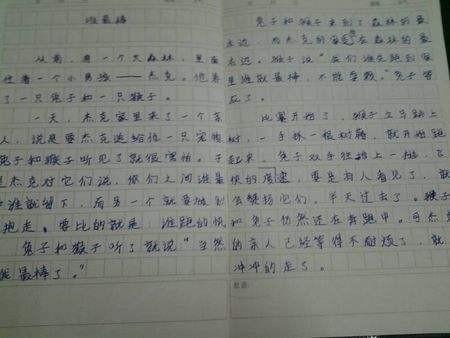 谁最棒
从前，有一个大森林，里面
住着一个小男孩——杰克。他养
了一只兔子和一只猴子。
一天，杰克家里来了一个客
人，说是要杰克送给他一只宠物
兔子和猴子听见了就很害怕。于
是杰克对它们说，你们之间谁最
棒谁就留下，而另一个就要被别
抱走。要比的就是：谁跑的快
兔子和猴子听了就说"当然
我最棒了。"
兔子和猴子来到了森林的最
东边，而杰克的家是在森林的最
西边。猴子说"我们谁先跑到家
里谁就最棒，不能拿戏。"兔子答
应了。
比赛开始了，猴子立马跳上
树，一手抹一根树藤，就开始跑
起来。兔子双手往路上一趴，飞
快的，要是有人看见了，就
会疑惑它们，半天过去了。猴子
和兔子仍然还在奔跑中。可杰克
的亲人已经等得不耐烦了，就
冲冲的走了。